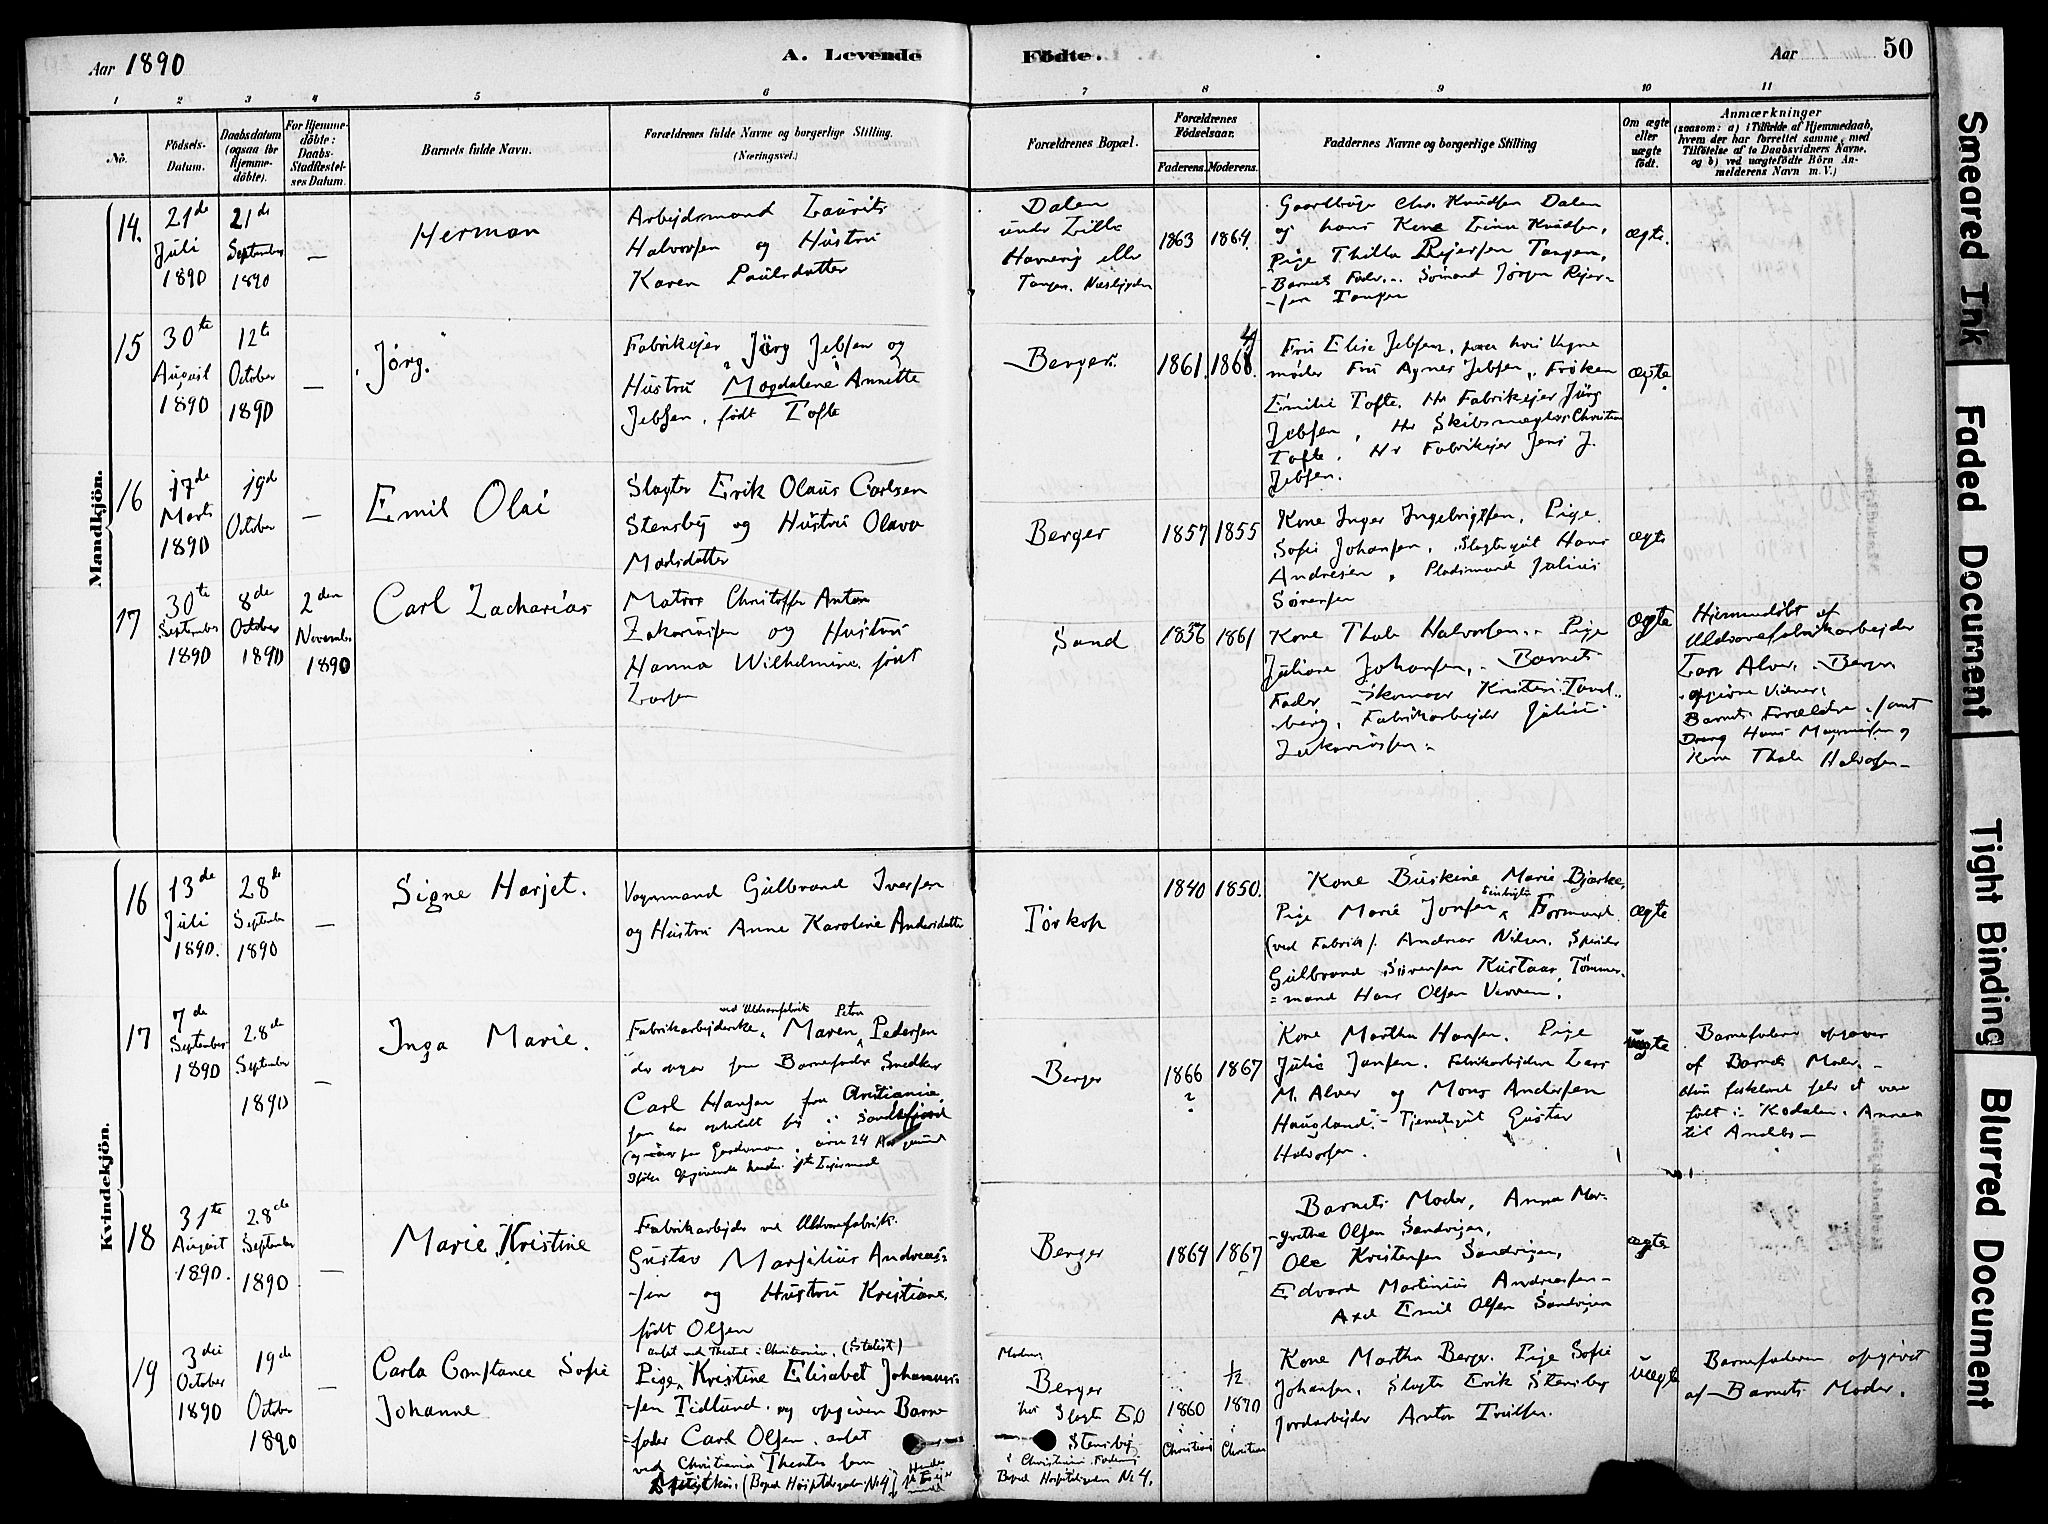 Aar 1890
A. Levende
Födte.
Aar
50
1 2 3 4 5 6 7 8 9 10 11
No.
Födsels-
Datum.
Daabsdatum
(ogsaa for
Hjemme-
döbte).
For Hjemme-
döbte:
Daabs-
Stadfæstel-
ses Datum.
Barnets fulde Navn.
Forældrenes fulde Navne og borgerlige Stilling.
(Næringsvei.)
Forældrenes Bopæl.
Forældrenes
Födselsaar.
Faderens. Moderens.
Faddernes Navne og borgerlige Stilling
Om ægte
eller
uægte
födt.
Anmærkninger
(saasom: a) i Tilfælde af Hjemmedaab,
hvem der har forrettet samme, med
Tilföielse af to Daabsvidners Navne,
og b) ved uægtefödte Börn An-
melderens Navn m. V.)
Mandkjön.
14.
21de
Juli
1890
21de
September
1890
—
Herman
Arbejdsmand Laurits
Halvorsen og Hustru
Karen Paulsdatter
Dalen
under Lille
Havnevig eller
Tangen. Næsbygden
1863
1864.
Gaardbruger Chr. Knudsen Dalen
og hans Kone Knudsen,
Pige Thilla Rejersen Tangen,
Barnets Fader. Sömand Jörgen Rejer-
sen Tangen
ægte.
15
30te
August
1890
12te
October
1890
—
Jörg.
Fabrikejer Jörg Jebsen og
Hustru "Magdalene" Annette
Jebsen, födt Tofte
Berger.
1861.
1868.
Fru Elise Jebsen, paa hvis Vegne
möder Fru Agnes Jebsen, Fröken
Emilie Tofte. Hr Fabrikejer Jürg
Jebsen, Hr Skibsmægler Christian
Tofte, Hr Fabrikejer Jens J.
Jebsen.
ægte
16
17de
Marts
1890
19de
October
—
Emil Olai
Slagter Erik Olaus Carlsen
Stensby og Hustru Olava
Madsdatter
Berger
1857
1855
Kone Inger Ingebrigtsen, Pige
Sofie Johansen, Slagtergut Hans
Andresen, Pladsmand Julius
Sörensen
ægte
17
30te
September
1890
8de
October
1890
2den
November
1890
Carl Zacharias
Matros Christoffer Anton
Zakariassen og Hustru
Hanna Wilhelmine födt
Larsen
Sand
1856
1861
Kone Thale Halvorsen. Pige
Juliane Johansen, Barnets
Fader Skomager Kristen Tand-
berg, Fabrikarbejder Julius
Zakariassen
ægte
Hjemmedöbt af
Uldvarefabrikarbejder
Lars Alver, Berger
opgivne Vidner:
Barnets Forældre, samt
Dreng Hans Magnussen og
Kone Thale Halvorsen
Kvindekjön.
16
13de
Juli
1890.
28de
September
1890
—
Signe Harjet.
Vognmand Gulbrand Iversen
og Hustru Anne Karoline Andersdatter
Törkop
1840
1850.
Kone Buskine Marie Bjerke,
Pige Marie Jonsen, Formand
(ved Fabrik). Andreas Nilsen, Spinder
Gulbrand Sörensen Kustaas, Tömmer-
mand Hans Olsen Vivven.
ægte
17
7de
September
1890
28de
September
1890
—
Inga Marie.
ved Uldvarefabrik Petra
Fabrikarbejderske, Maren Pedersen
der opgiver som Barnefader Snedker
Carl Hansen fra Christiania,
som har opholdt sig i Sandefjord
Berger
1866
?
1867
Kone Martha Hansen. Pige
Julie Jansen. Fabrikarbejderne Lars
M. Alver og Mons Andersen
Haugland. Tjenestegut Gustav
Halvorsen.
uægte
Barnefaderen opgivet
af Barnets Moder.
Hun forklared selv at være
födt i Kodalen, Annex
til Andebo
18
31te
August
1890.
28de
September
1890
—
Marie Kristine
Fabrikarbejder ved Uldvarefabrik.
Gustav Marselius Andreas-
sen og Hustru Kristiane
födt Olsen
Berger
1864
1867
Barnets Moder, Anna Mar-
grethe Olsen Sandvigen,
Ole Kristensen Sandvigen,
Edvard Martinius Andreassen
Axel Emil Olsen Sandvigen
ægte
19
3die
October
1890
19de
October
1890
—
Carla Constance Sofie
Johanne
arbet ved Theatret i Christiania
Pige Kristine Elisabet Johannes-
sen Tidlund og opgiven Barne-
fader Carl Olsen, arbet
ved Christiania Theater som
(Bopæl Hospitalsgaden No 4)
Moderen
Berger
hos
Slagter E. O
Stensby
i Christiania Faderen
Bopæl Hospitalsgaden No 4,
1860
Christiania
1870
Christiania
Kone Martha Berger. Pige Sofie
Johansen, Slagter Erik Stensby
Jordarbejder Anton Truulsen.
uægte
Barnefaderen opgivet
af Barnets Moder.
Smeared Ink
Faded Document
Tight Binding
Blurred Document